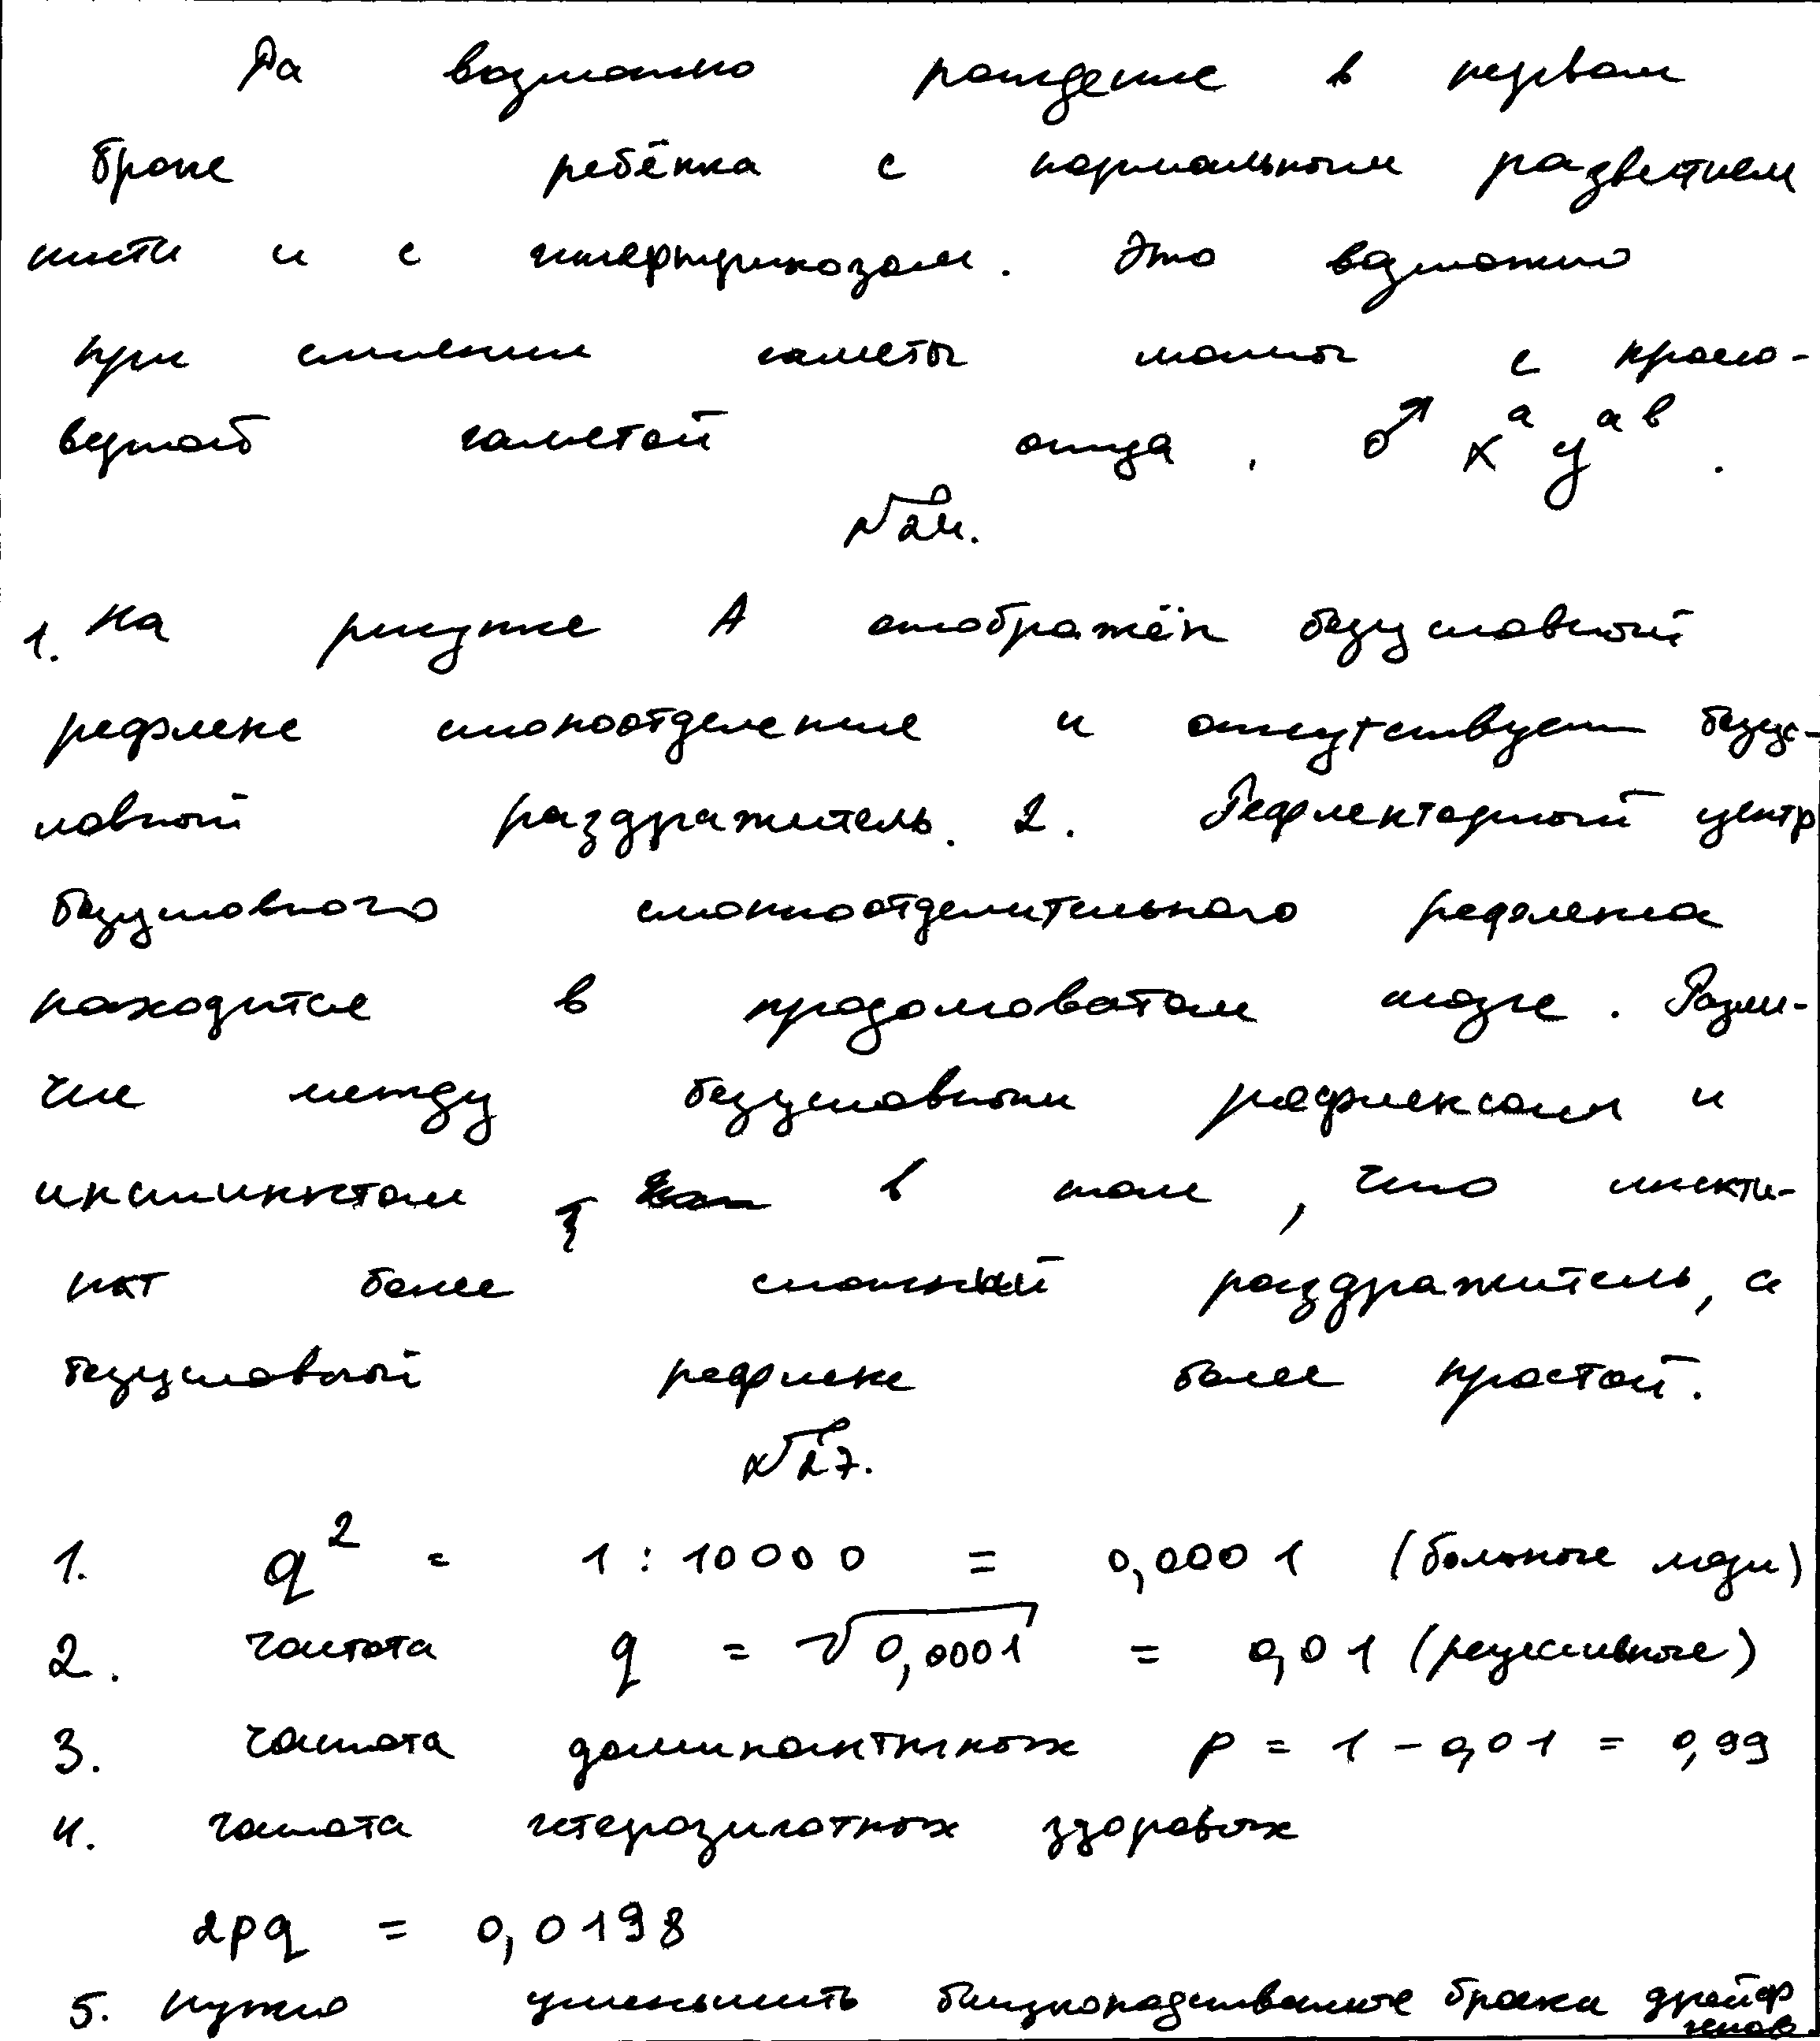 Да возможно рождение в первом
браке ребёнка с нормальным развитием
кисти и с гипертрихозом. Это возможно
при слиянии гаметы мамы с кроссо-
верной гаметой отца, ♂ X^a Y^ab.
№24.
1. На рисунке А отображён безусловный
рефлекс слюноотделение и отсутствует безус-
ловный раздражитель. 2. Рефлекторный центр
безусловного слюноотделительного рефлекса
находится в продолговатом мозге. Разли-
чие между безусловными рефлексами и
инстинктом, в том, что инстин-
кт более сложный раздражитель, а
безусловный рефлекс более простой.
№27.
1. q² = 1 : 10000 = 0,0001 (больные люди)
2. частота q = √0,0001 = 0,01 (рецессивные)
3. частота доминантных p = 1 - 0,01 = 0,99
4. частота гетерозиготных здоровых
2pq = 0,0198
5. Нужно уменьшить близкородственные браки дрейф
генов.